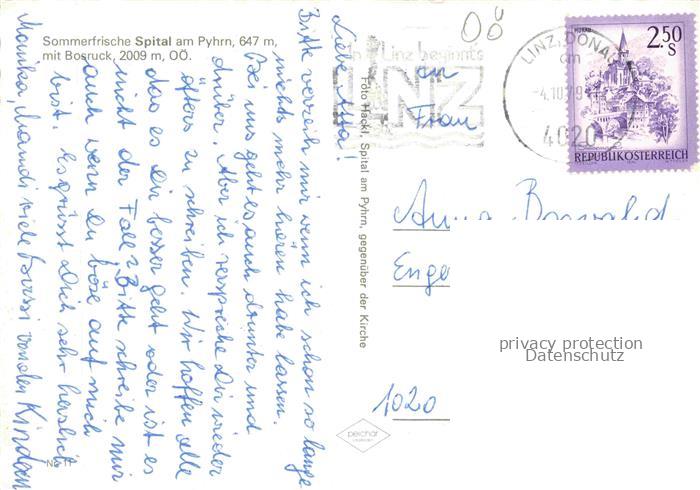 Sommerfrische Spital am Pyhrn, 647 m,
mit Bosruck, 2009 m, OÖ.
OÖ
Liebe Anna!
Bitte verzeih mir wenn ich schon so lange
nichts mehr hören habe lassen.
Bei uns geht es auch drunter und
drüber. Aber ich verspreche Dir wieder
öfters zu schreiben. Wir hoffen alle
das es Dir besser geht oder ist es
nicht der Fall? Bitte schreibe mir
auch wenn Du böse auf mich
bist. Es grüsst Dich sehr herzlich
Monika, Mandi viele Bussi von den Kindern
Nr. 11
Foto Hackl, Spital am Pyhrn, gegenüber der Kirche
In Linz beginnt's
LINZ
LINZ, DONAU
4020
MURAU
2.50
S
REPUBLIK ÖSTERREICH
an
Frau
Anna
Enge
1020
privacy protection
Datenschutz